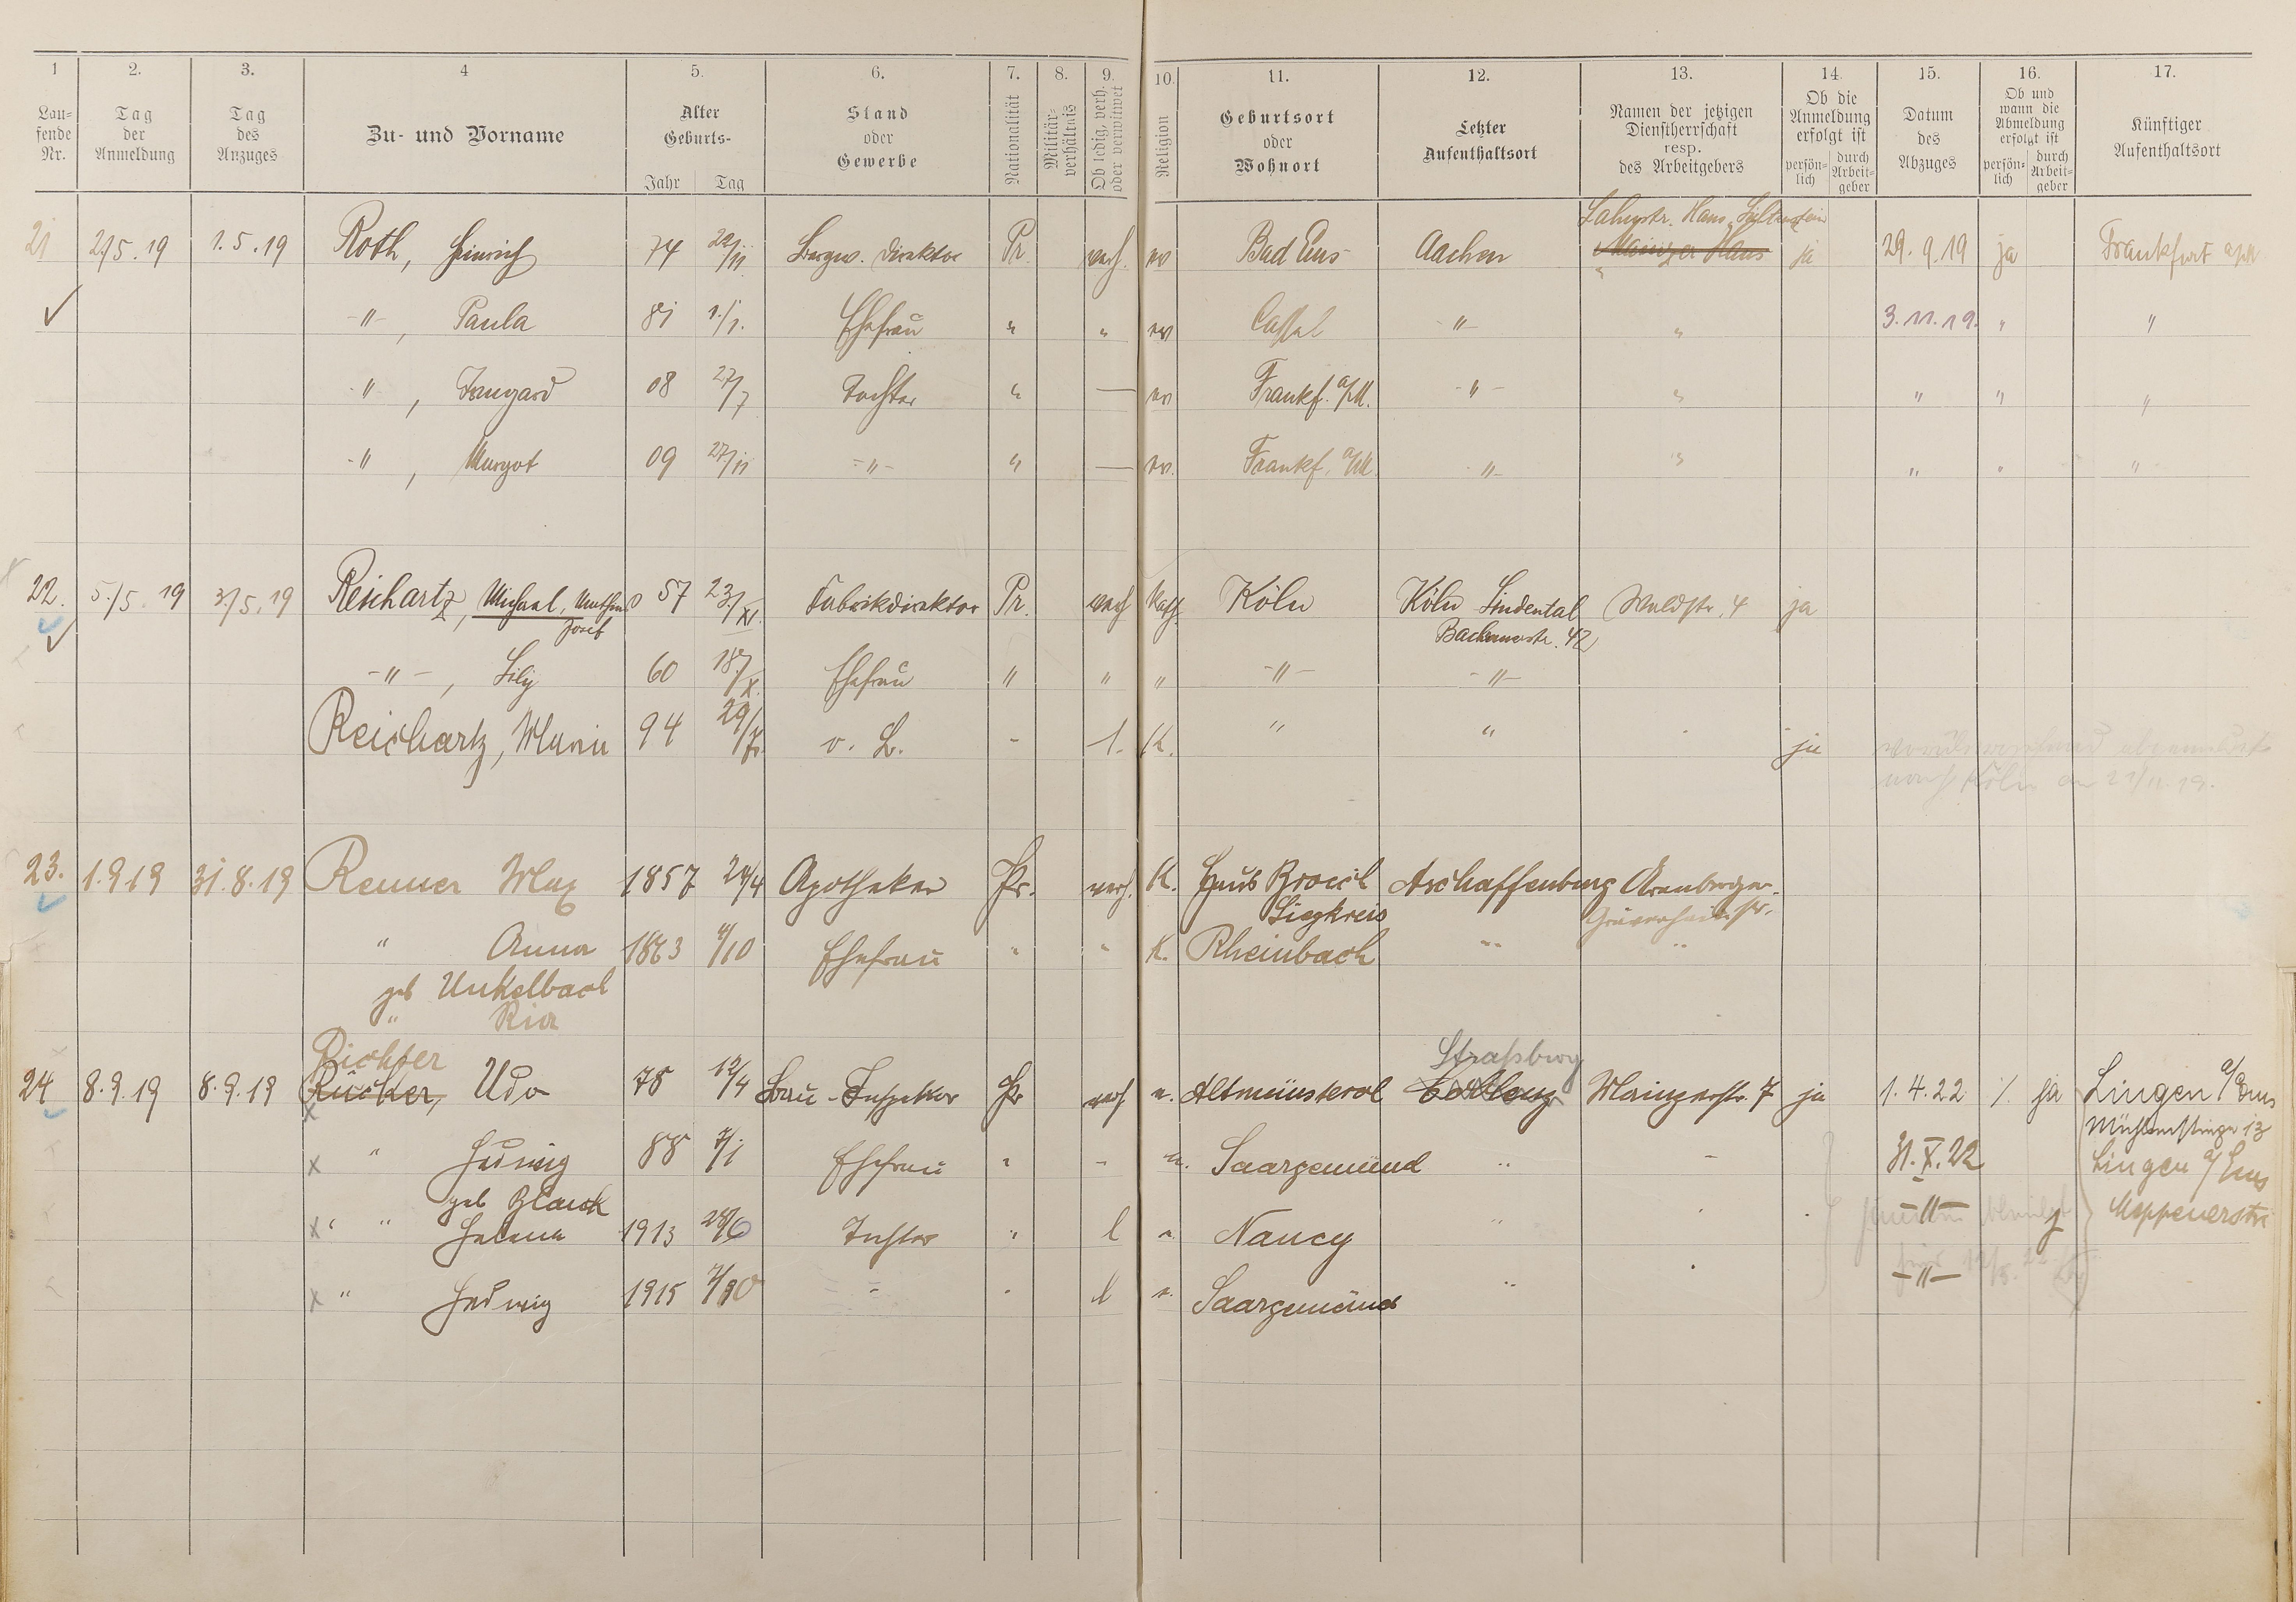 1 2. 3. 4 5. 6. 7. 8. 9. 10. 11. 12. 13. 14. 15. 16. 17.
Lau-
fende
Nr.
Tag
der
Anmeldung
Tag
des
Anzuges
Zu- und Vorname
Alter
Geburts-
Jahr Tag
Stand
oder
Gewerbe
Nationalität
Militär-
verhältnis
Ob ledig, verh.
oder verwitwet
Religion
Geburtsort
oder
Wohnort
Letzter
Aufenthaltsort
Namen der jetzigen
Dienstherrschaft
resp.
des Arbeitgebers
Ob die
Anmeldung
erfolgt ist
persön-
lich
durch
Arbeit-
geber
Datum
des
Abzuges
Ob und
wann die
Abmeldung
erfolgt ist
persön-
lich
durch
Arbeit-
geber
Künftiger
Aufenthaltsort
Lahnstr. Haus
21 2/5.19 1.5.19 Roth, Heinrich 74 22/11 Bergw. Direktor Pr. verh. ev Bad Ems Aachen Mainzer Haus ja 29.9.19 ja Frankfurt a/M
-"-, Paula 81 1./1. Ehefrau " " ev Cassel -"- " 3.11.19. " "
", Irmgard 08 27/7 Tochter " — ev Frankf. a/M. -"- " " " "
-", Margot 09 27/11 -"- " — ev. Frankf. a/M. -"- " " " "
22. 5./5. 19 3./5.19 Reichartz, Michael, Mathias 57 23/XI. Fabrikdirektor Pr. verh Kath. Köln Köln Lindental Waldstr. 4 ja
Josef Bachemerstr. 42
-"-, Lily 60 18/X. Ehefrau " " " -"- -"-
Reichartz, Maria 94 29/ o. B. - l. K. " " ja vorübergehend abgemeldet
nach Köln am 21/11.19.
23. 1.9.19 31.8.19 Renner Max 1857 24/4 Apotheker Pr. verh. K. Haus Broich Aschaffenburg Arenberger-
Siegkreis
" Anna 1863 4/10 Ehefrau " " K. Rheinbach " "
geb Unkelbach
" Ria
Richter Straßburg
24 8.9.19 8.9.19 Rücker, Udo 78 12/4 Bau-Inspektor Pr verh e. Altmünsterol Coblenz Mainzerstr. 7 ja 1.4.22 /. ja Lingen a/Ems
13
" Hedwig 88 7/1 Ehefrau " - e. Saargemünd " - 31.X.22 Lingen a/Ems
geb Blanck
" Helena 1913 28/6 Tochter " l e. Nancy " -"- Meppenerstr
" Hedwig 1915 7/10 " l e. Saargemünd " -"-